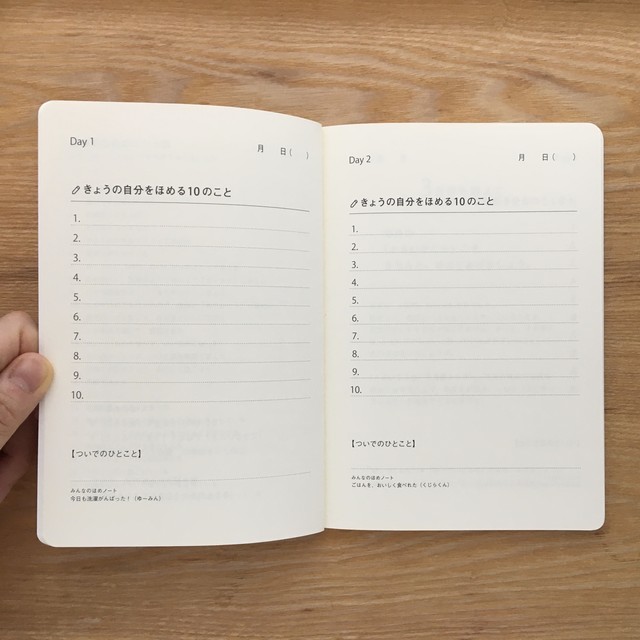 Day 1
月 日( )
きょうの自分をほめる10のこと
1.
2.
3.
4.
5.
6.
7.
8.
9.
10.
【ついでのひとこと】
みんなのほめノート
今日も洗濯がんばった!(ゆ〜みん)
Day 2
月 日( )
きょうの自分をほめる10のこと
1.
2.
3.
4.
5.
6.
7.
8.
9.
10.
【ついでのひとこと】
みんなのほめノート
ごはんを、おいしく食べれた(くじらくん)